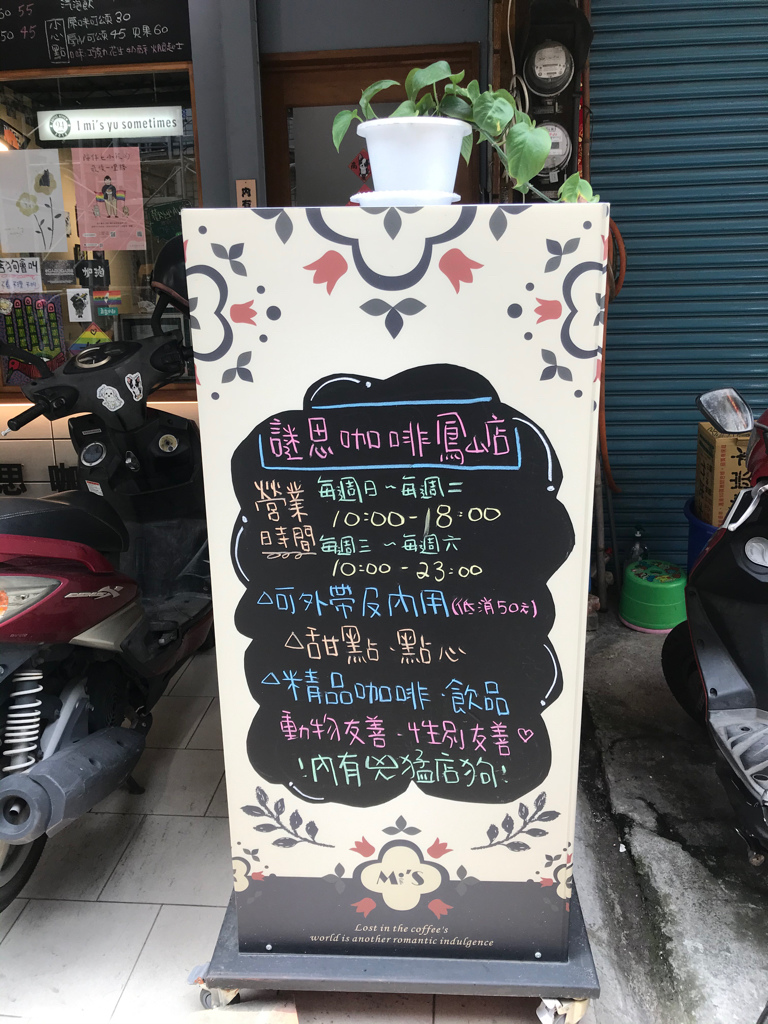 汽泡飲
50 55
50 45
小心點
原味可頌 30
風味可頌 45 貝果 60
口味:巧克力 花生 奶酥 火腿起士
I mi's yu sometimes
內有
謎思咖啡鳳山店
營業時間
每週日～每週二
10:00-18:00
每週三～每週六
10:00-23:00
△可外帶及內用(低消50元)
△甜點.點心
△精品咖啡.飲品
動物友善.性別友善♡
!內有兇猛店狗!
Mi'S
Lost in the coffee's
world is another romantic indulgence
思 咖